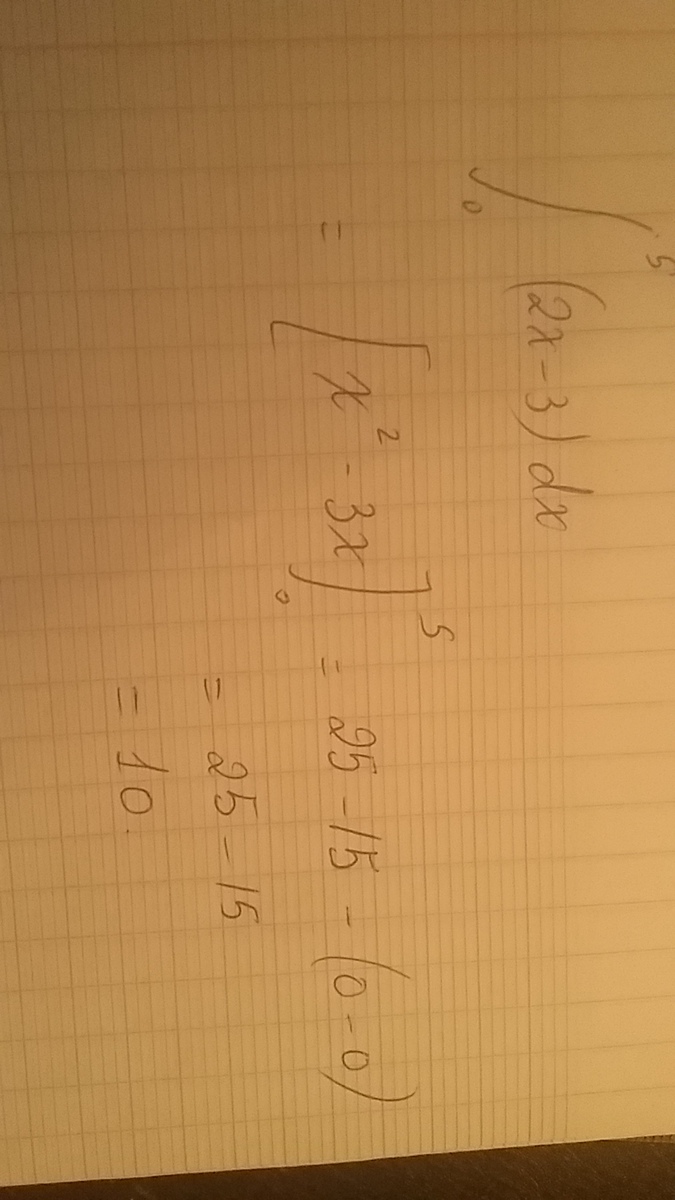 ∫₀⁵ (2x-3) dx
= [x² - 3x]₀⁵ = 25 - 15 - (0 - 0)
= 25 - 15
= 10.